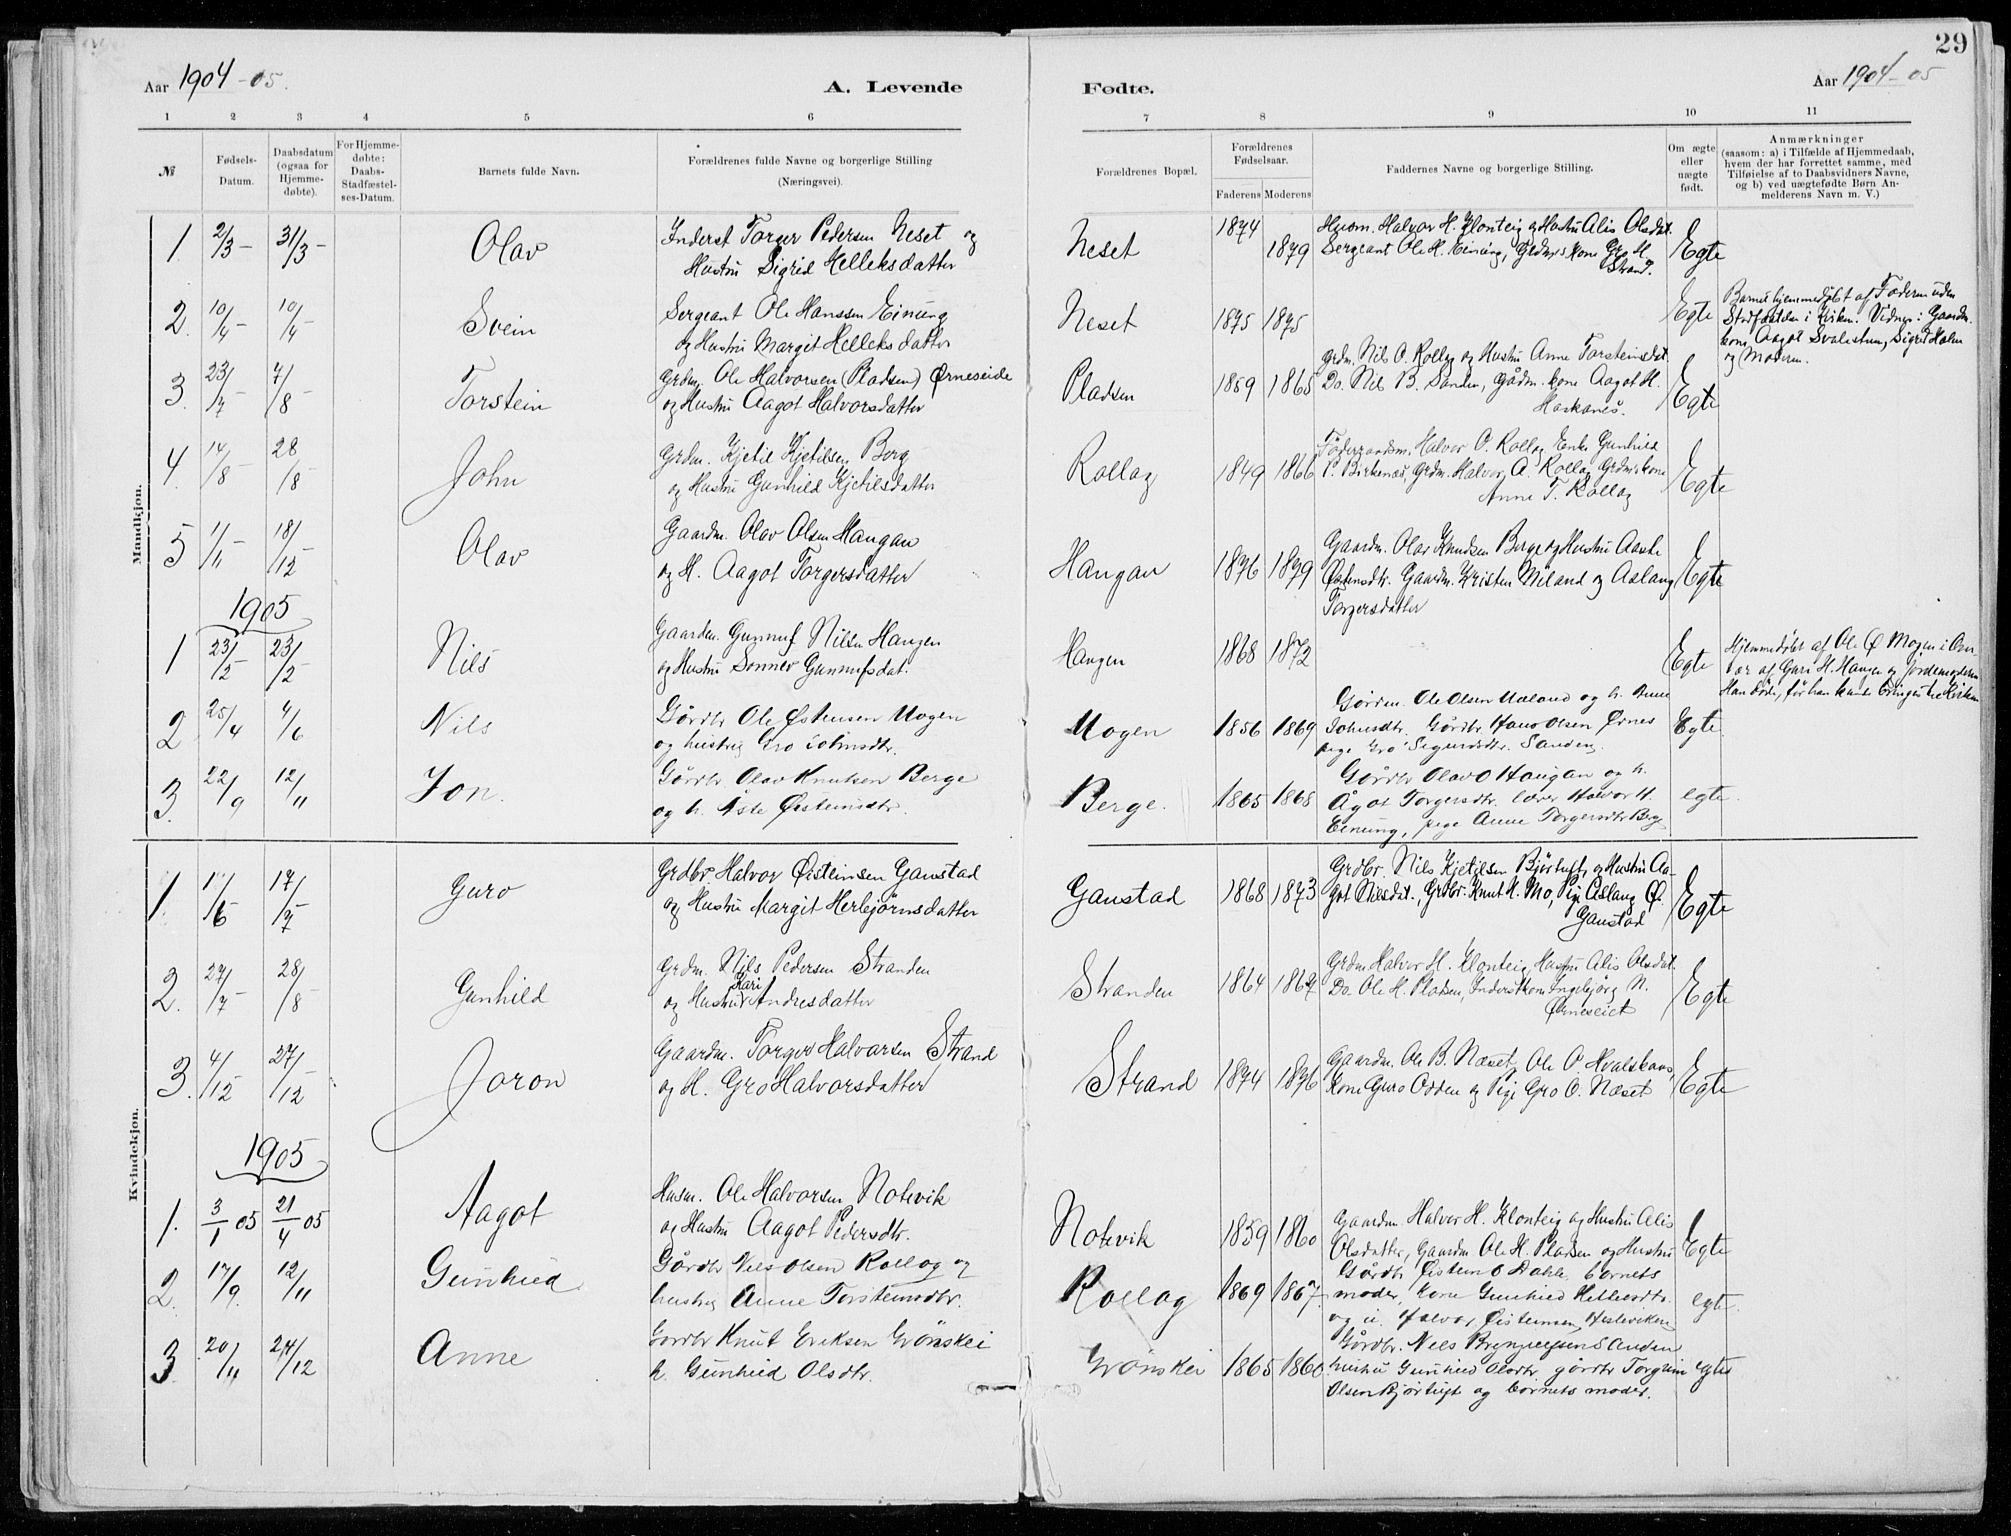 29
Aar 1904-05.
A. Levende
Fødte.
Aar 1904-05
1 2 3 4 5 6 7 8 9 10 11
№
Fødsels-Datum.
Daabsdatum (ogsaa for Hjemme-døbte).
For Hjemme-døbte: Daabs-Stadfæstel-ses-Datum.
Barnets fulde Navn.
Forældrenes fulde Navne og borgerlige Stilling
(Næringsvei).
Forældrenes Bopæl.
Forældrenes Fødselsaar.
Faderens Moderens
Faddernes Navne og borgerlige Stilling.
Om ægte eller uægte født.
Anmærkninger
(saasom: a) i Tilfælde af Hjemmedaab,
hvem der har forrettet samme, med
Tilføielse af to Daabsvidners Navne,
og b) ved uægtefødte Børn An-
melderens Navn m. V.)
Mandkjøn.
1 2/3 - 31/3 - Olav
Inderst Torger Pedersen Neset og
Hustru Sigrid Helleksdatter
Neset 1874 1879
Husm. Halvor H. Klonteig og Hustru Alis Olsdat.
Sergeant Ole H. Einung, Grdmds kone Gro H.
Strand.
Egte
2. 10/4 - 10/4 - Svein
Sergeant Ole Hanssen Einung
og Hustru Margit Helleksdatter
Neset 1875 1875
Egte
Barnet hjemmedøbt af Faderen uden
Stadfæstelse i Kirken. Vidner: Gaardm.
kone Aagot Svalestuen, Sigrid Holm
og Moderen.
3. 23/7 7/8 - Torstein
Grdm. Ole Halvorsen (Pladsen) Ørneseide
og Hustru Aagot Halvorsdatter
Pladsen 1859 1865
Grdm. Nils O. Rollag og Hustru Anne Torsteinsdat.
Do. Nil B. Sanden, Gådm. kone Aagot H.
Haakanes.
Egte
4. 14/8 - 28/8 John
Grdm. Kjetil Kjetilsen Berg
og Hustru Gunhild Kjetilsdatter
Rollag 1849 1866
Føderaadsm. Halvor O. Rollag Enke Gunhild
P. Birkenæs, Grdm. Halvor A. Rollag Grdmskone
Anne T. Rollag
Egte
5 1/11 - 18/12 - Olav
Gaardm. Olav Olsen Haugan
og H. Aagot Torgersdatter
Haugan 1876 1879
Gaardm. Olav Knudsen Berge og Hustru Aaste
Østensdtr. Gaardm. Kristen Meland og Aslaug
Torgersdatter
Egte
1905
1 23/2 23/2 Nils
Gaardm. Gunnuf Nilsen Haugen
og Hustru Sonnev Gunnufsdat.
Haugen 1868 1872
Egte
Hjemmedøbt af Ole Ø Mogen i Over
vær af Guri H. Haugen og Jordemoderen
Han døde, før han kunde bringes til Kirken
2 25/4 4/6 Nils
Gårdbr Ole Østensen Mogen
og hustru Gro Johnsdtr.
Mogen 1856 1869
Gårdm. Ole Olsen Maland og h. Anne
Johnsdtr. Gårdbr. Hans Olsen Ørnes
pige Gro Sigurdsdtr. Sanden.
Egte
3. 22/9 12/11 Jon.
Gårdbr Olav Knutsen Berge
og h. Åste Øisteinsdtr.
Berge. 1865 1868
Gårdbr Olav O Haugan og h.
Ågot Torgersdtr. lærer Halvor H.
Einung, pige Anne Torgersdtr Berge
egte.
Kvindekjøn.
1 1/6 - 17/7 - Guro
Grdbr Halvor Østeinsen Gaustad
og Hustru Margit Herbjørnsdatter
Gaustad 1868 1873
Grdbr. Nils Kjetilsen Bjørtuft og Hustru Aa-
got Nilsdat., Grdbr. Knut H. Mo, Pige Aslaug Ø.
Gaustad
Egte
2. 27/7 - 28/8 Gunhild
Grdm. Nils Pedersen Stranden
og Hustru Kari Andresdatter
Stranden 1864 1862
Grdm Halvor H. Klonteig, Hustru Alis Olsdat.
Do. Ole H. Pladsen, Inderstkone Ingebjørg N.
Ørneseiet
Egte
3. 4/12 - 27/12 Joron
Gaardm. Torger Halvorsen Strand
og H. Gro Halvorsdatter
Strand 1874 1876
Gaardm. Ole B. Næset, Ole O. Hvalskaas,
Kone Guro Odden og Pige Gro O. Næset
Egte
1905
1. 3/1 05 21/4 05 Aagot
Husm. Ole Halvorsen Notevik
og Hustru Aagot Pedersdtr.
Notevik 1859 1860
Gaardm. Halvor H. Klonteig og Hustru Alis
Olsdatter, Gaardm Ole H. Pladsen og Hustru
Egte
2. 17/9. 12/11 Gunhild
Gårdbr Nils Olsen Rollag og
hustru Anne Torsteinsdtr.
Rollag 1869 1867
Gårdbr Øistein O Dahle, barnets
moder, kone Gunhild Helleksdtr.
og u. Halvor Øisteinsen, Hesleviken
egte
3. 20/11 24/12 Anne
Gårdbr Knut Eriksen Grønskei
h. Gunhild Olsdtr.
Grønskei 1865 1860
Gårdbr. Nels Brynjulfsen Sanden
hustru Gunhild Olsdtr gårdbr Torgrim
Olsen Bjørtuft og barnets moder.
egte